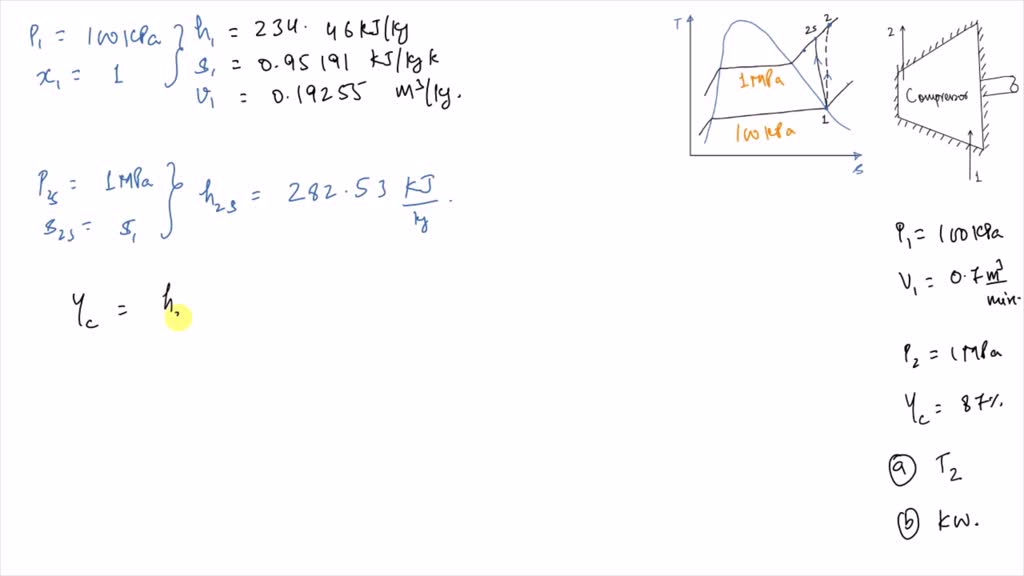 P₁ = 100 kPa } h₁ = 234.46 kJ/kg
x₁ = 1 s₁ = 0.95191 kJ/kg k
v₁ = 0.19255 m³/kg.
P₂ₛ = 1 MPa } h₂ₛ = 282.53 KJ/kg.
s₂ₛ = s₁
η_c = h₂
T
2s
2
1 MPa
100 kPa
1
s
2
Compressor
1
P₁ = 100 kPa
V₁ = 0.7 m³/min.
P₂ = 1 MPa
η_c = 87%
ⓐ T₂
ⓑ kw.